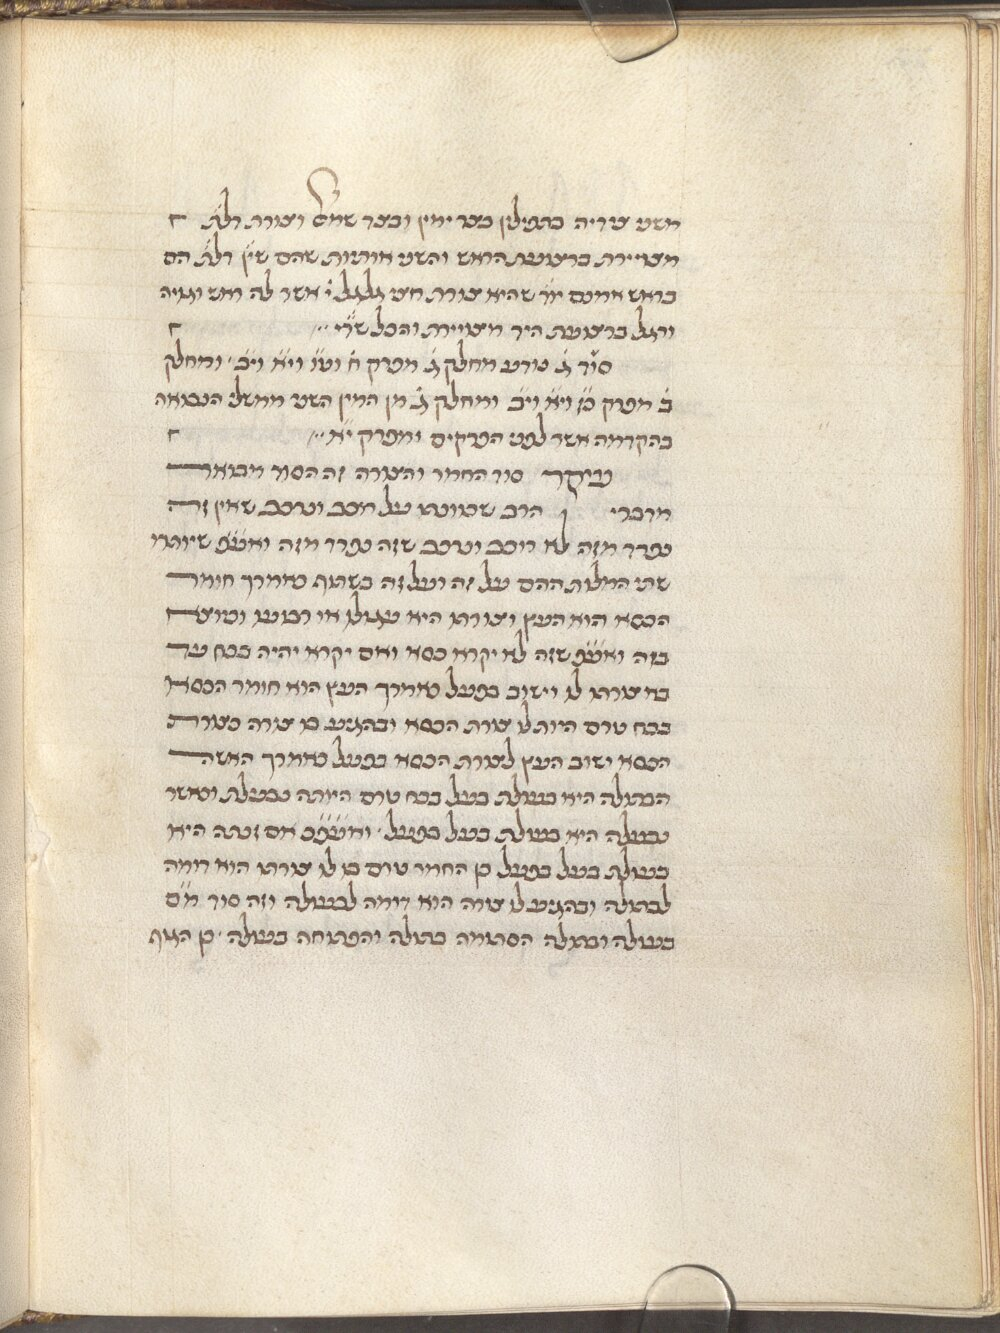 משש שריה בתפילין בצד ימין ובצד שמאל וצורת דלת
מצויירת ברצועת הראש והשש אותיות שהם שין דלת הם
בראש אמנם יוד שהיא צורת חצי גלגל אשר לה ראש וגויה
ורגל ברצועת היד מצויירת והכל שדי
סוד ג נודע מחלק ג מפרק ח וט ויא ויב ומחלק
ב מפרק כז ויא ויב ומחלק ג מן המין השש ממשלי הנבואה
בהקדמה אשר לפני הפרקים ומפרק יא
עיקר סוד החמר והצורה זה הסוד מבואר
מדברי הרב שטוענו על רוכב ונרכב שאין זה
נפרד מזה לא רוכב ונרכב שזה נפרד מזה ואעפ שיורו
שתי המלות ההם על זה ועל זה בשתוף כאמרך חומר
הכסא הוא העץ וצורתו היא עגולו או רבועו וכיוצא
בזה ואעפ שזה לא יקרא כסא ואם יקרא יהיה בכח עד
בא צורתו לו וישוב בפעל כאמרך העץ הוא חומר הכסא
בכח טרם היות לו צורת הכסא ובהגיע בו צורה כצורת
הכסא ישוב העץ לצורת הכסא בפעל כאמרך האשה
הבתולה היא בעולת בעל בכח טרם היותה נבעלת וכאשר
נבעלה היא בעולת בעל בפעל ואעפכ אם זנתה היא
בעולת בעל בפעל כן החמר טרם בו לו צורתו הוא דומה
לבתולה ובהגיע לו צורה הוא דומה לבעולה וזה סוד מם
בעולה ובתולה הסתומה בתולה והפתוחה בעולה כן הגוף